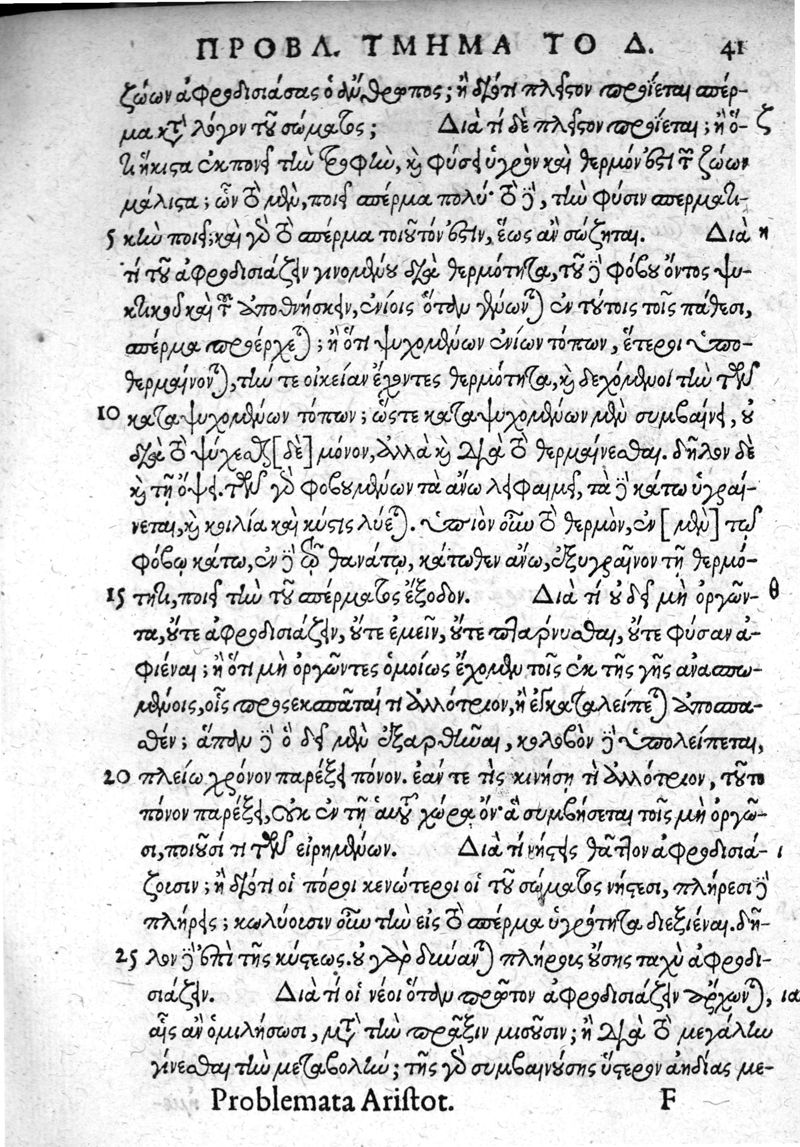 ΠΡΟΒΛ. ΤΜΗΜΑ ΤΟ Δ. 41
ζώων ἀφροδισιάσας ὁ ἄνθρωπος; ἢ διότι πλεῖον προΐεται σπέρ-
μα κατὰ λόγον τοῦ σώματος; Διὰ τί δὲ πλεῖον προΐεται; ἢ ὅ- ζ
τι ἥκιστα ἐκπονεῖ τὴν τροφὴν, καὶ φύσει ὑγρὸν καὶ θερμόν ἐστι τῶν ζώων
μάλιστα; ὧν τὸ μὲν, ποιεῖ σπέρμα πολύ· τὸ δὲ, τὴν φύσιν σπερματι-
5 κὴν ποιεῖ; καὶ γὰρ τὸ σπέρμα τοιοῦτόν ἐστιν, ἕως ἂν σώζηται. Διὰ η
τί τοῦ ἀφροδισιάζειν γινομένου διὰ θερμότητα, τοῦ δὲ φόβου ὄντος ψυ-
κτικοῦ καὶ τοῦ ἀποθνήσκειν, ἐνίοις ὅταν γένωνται ἐν τούτοις τοῖς πάθεσι,
σπέρμα προέρχεται; ἢ ὅτι ψυχομένων ἐνίων τόπων, ἕτεροι ὑπο-
θερμαίνονται, τήν τε οἰκείαν ἔχοντες θερμότητα, καὶ δεχόμενοι τὴν τῶν
10 καταψυχομένων τόπων; ὥστε καταψυχομένων μὲν συμβαίνει, οὐ
διὰ τὸ ψύχεσθαι [δὲ] μόνον, ἀλλὰ καὶ διὰ τὸ θερμαίνεσθαι. δῆλον δὲ
καὶ τῇ ὄψει. τῶν γὰρ φοβουμένων τὰ ἄνω λειφαιμεῖ, τὰ δὲ κάτω ὑγραί-
νεται, καὶ κοιλία καὶ κύστις λύεται. ὑπιὸν οὖν τὸ θερμὸν, ἐν [μὲν] τῷ
φόβῳ κάτω, ἐν δὲ τῷ θανάτῳ, κάτωθεν ἄνω, ἐξυγραῖνον τῇ θερμό-
15 τητι, ποιεῖ τὴν τοῦ σπέρματος ἔξοδον. Διὰ τί οὐ δεῖ μὴ ὀργῶν- θ
τα, οὔτε ἀφροδισιάζειν, οὔτε ἐμεῖν, οὔτε πταρνυσθαι, οὔτε φύσαν ἀ-
φιέναι; ἢ ὅτι μὴ ὀργῶντες ὁμοίως ἔχομεν τοῖς ἐκ τῆς γῆς ἀνασπω-
μένοις, οἷς προσεκσπᾶταί τι ἀλλότριον, ἢ ἐγκαταλείπεται ἀποσπα-
σθέν; ἅπαν δὲ ὃ δεῖ μὲν ἐξαρθῆναι, κολοβὸν δὲ ὑπολείπεται,
20 πλείω χρόνον παρέξει πόνον. ἐάν τε τὶς κινήσῃ τὶ ἀλλότριον, τοῦτο
πόνον παρέξει, οὐκ ἐν τῇ αὑτοῦ χώρᾳ ὄν· ἃ συμβήσεται τοῖς μὴ ὀργῶ-
σι, ποιοῦσί τι τῶν εἰρημένων. Διὰ τί νήστεις θᾶττον ἀφροδισιά- ι
ζουσιν; ἢ διότι οἱ πόροι κενώτεροι οἱ τοῦ σώματος νήστεσι, πλήρεσι δὲ
πλήρεις; κωλύουσιν οὖν τὴν εἰς τὸ σπέρμα ὑγρότητα διεξιέναι. δῆ-
25 λον δὲ ἐπὶ τῆς κύστεως. οὐ γὰρ δύνανται πλήρους οὔσης ταχὺ ἀφροδι-
σιάζειν. Διὰ τί οἱ νέοι ὅταν πρῶτον ἀφροδισιάζειν ἄρχωνται, ια
αἷς ἂν ὁμιλήσωσι, μετὰ τὴν πρᾶξιν μισοῦσιν; ἢ διὰ τὸ μεγάλην
γίνεσθαι τὴν μεταβολήν; τῆς γὰρ συμβαινούσης ὕστερον ἀηδίας με-
Problemata Aristot. F